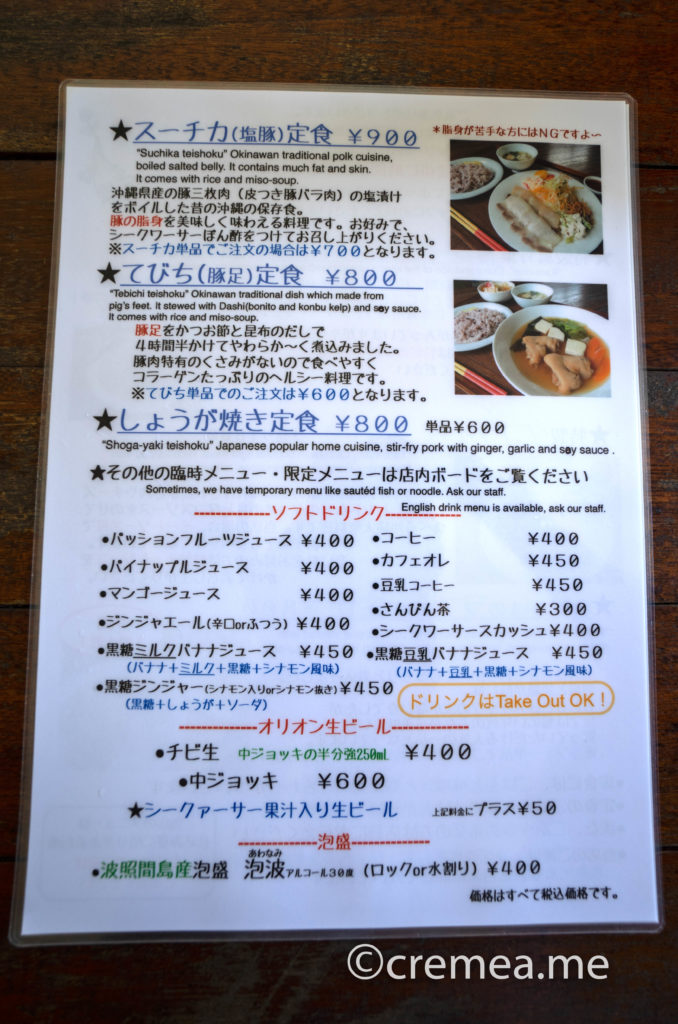 ★スーチカ(塩豚)定食 ￥900
＊脂身が苦手な方にはNGですよ〜
"Suchika teishoku" Okinawan traditional polk cuisine,
boiled salted belly. It contains much fat and skin.
It comes with rice and miso-soup.
沖縄県産の豚三枚肉（皮つき豚バラ肉）の塩漬け
をボイルした昔の沖縄の保存食。
豚の脂身を美味しく味わえる料理です。お好みで、
シークワーサーぽん酢をつけてお召し上がりください。
※スーチカ単品でご注文の場合は￥700となります。
★てびち(豚足)定食 ￥800
"Tebichi teishoku" Okinawan traditional dish which made from
pig's feet. It stewed with Dashi(bonito and konbu kelp) and soy sauce.
It comes with rice and miso-soup.
豚足をかつお節と昆布のだしで
4時間半かけてやわらか〜く煮込みました。
豚肉特有のくさみがないので食べやすく
コラーゲンたっぷりのヘルシー料理です。
※てびち単品でのご注文は￥600となります。
★しょうが焼き定食 ￥800 単品￥600
"Shoga-yaki teishoku" Japanese popular home cuisine, stir-fry pork with ginger, garlic and soy sauce .
★その他の臨時メニュー・限定メニューは店内ボードをご覧ください
Sometimes, we have temporary menu like sautéd fish or noodle. Ask our staff.
--------------ソフトドリンク--------------
English drink menu is available, ask our staff.
●パッションフルーツジュース ￥400
●コーヒー ￥400
●パイナップルジュース ￥400
●カフェオレ ￥450
●マンゴージュース ￥400
●豆乳コーヒー ￥450
●ジンジャエール(辛口orふつう) ￥400
●さんぴん茶 ￥300
●シークワーサースカッシュ￥400
●黒糖ミルクバナナジュース ￥450
(バナナ＋ミルク＋黒糖＋シナモン風味)
●黒糖豆乳バナナジュース ￥450
(バナナ＋豆乳＋黒糖＋シナモン風味)
●黒糖ジンジャー(シナモン入りorシナモン抜き)￥450
(黒糖＋しょうが＋ソーダ)
ドリンクはTake Out OK！
--------------オリオン生ビール--------------
●チビ生 中ジョッキの半分強250mL ￥400
●中ジョッキ ￥600
★シークァーサー果汁入り生ビール 上記料金にプラス￥50
--------------泡盛--------------
あわなみ
●波照間島産泡盛 泡波アルコール30度 (ロックor水割り) ￥400
価格はすべて税込価格です。
©cremea.me